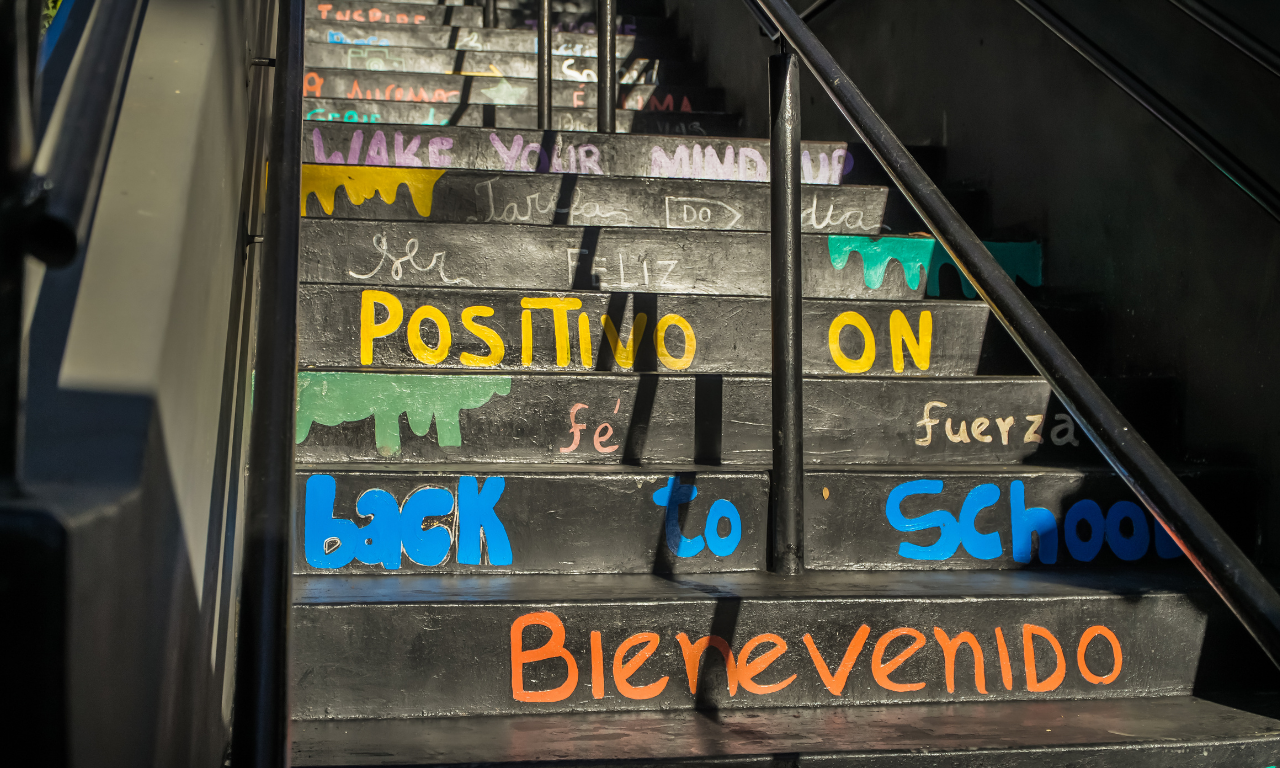 INSPIRE
É UMA
WAKE YOUR MIND UP
Tarefa DO dia
Ser FELIZ
POSITIVO ON
fé fuerza
back to School
Bienevenido